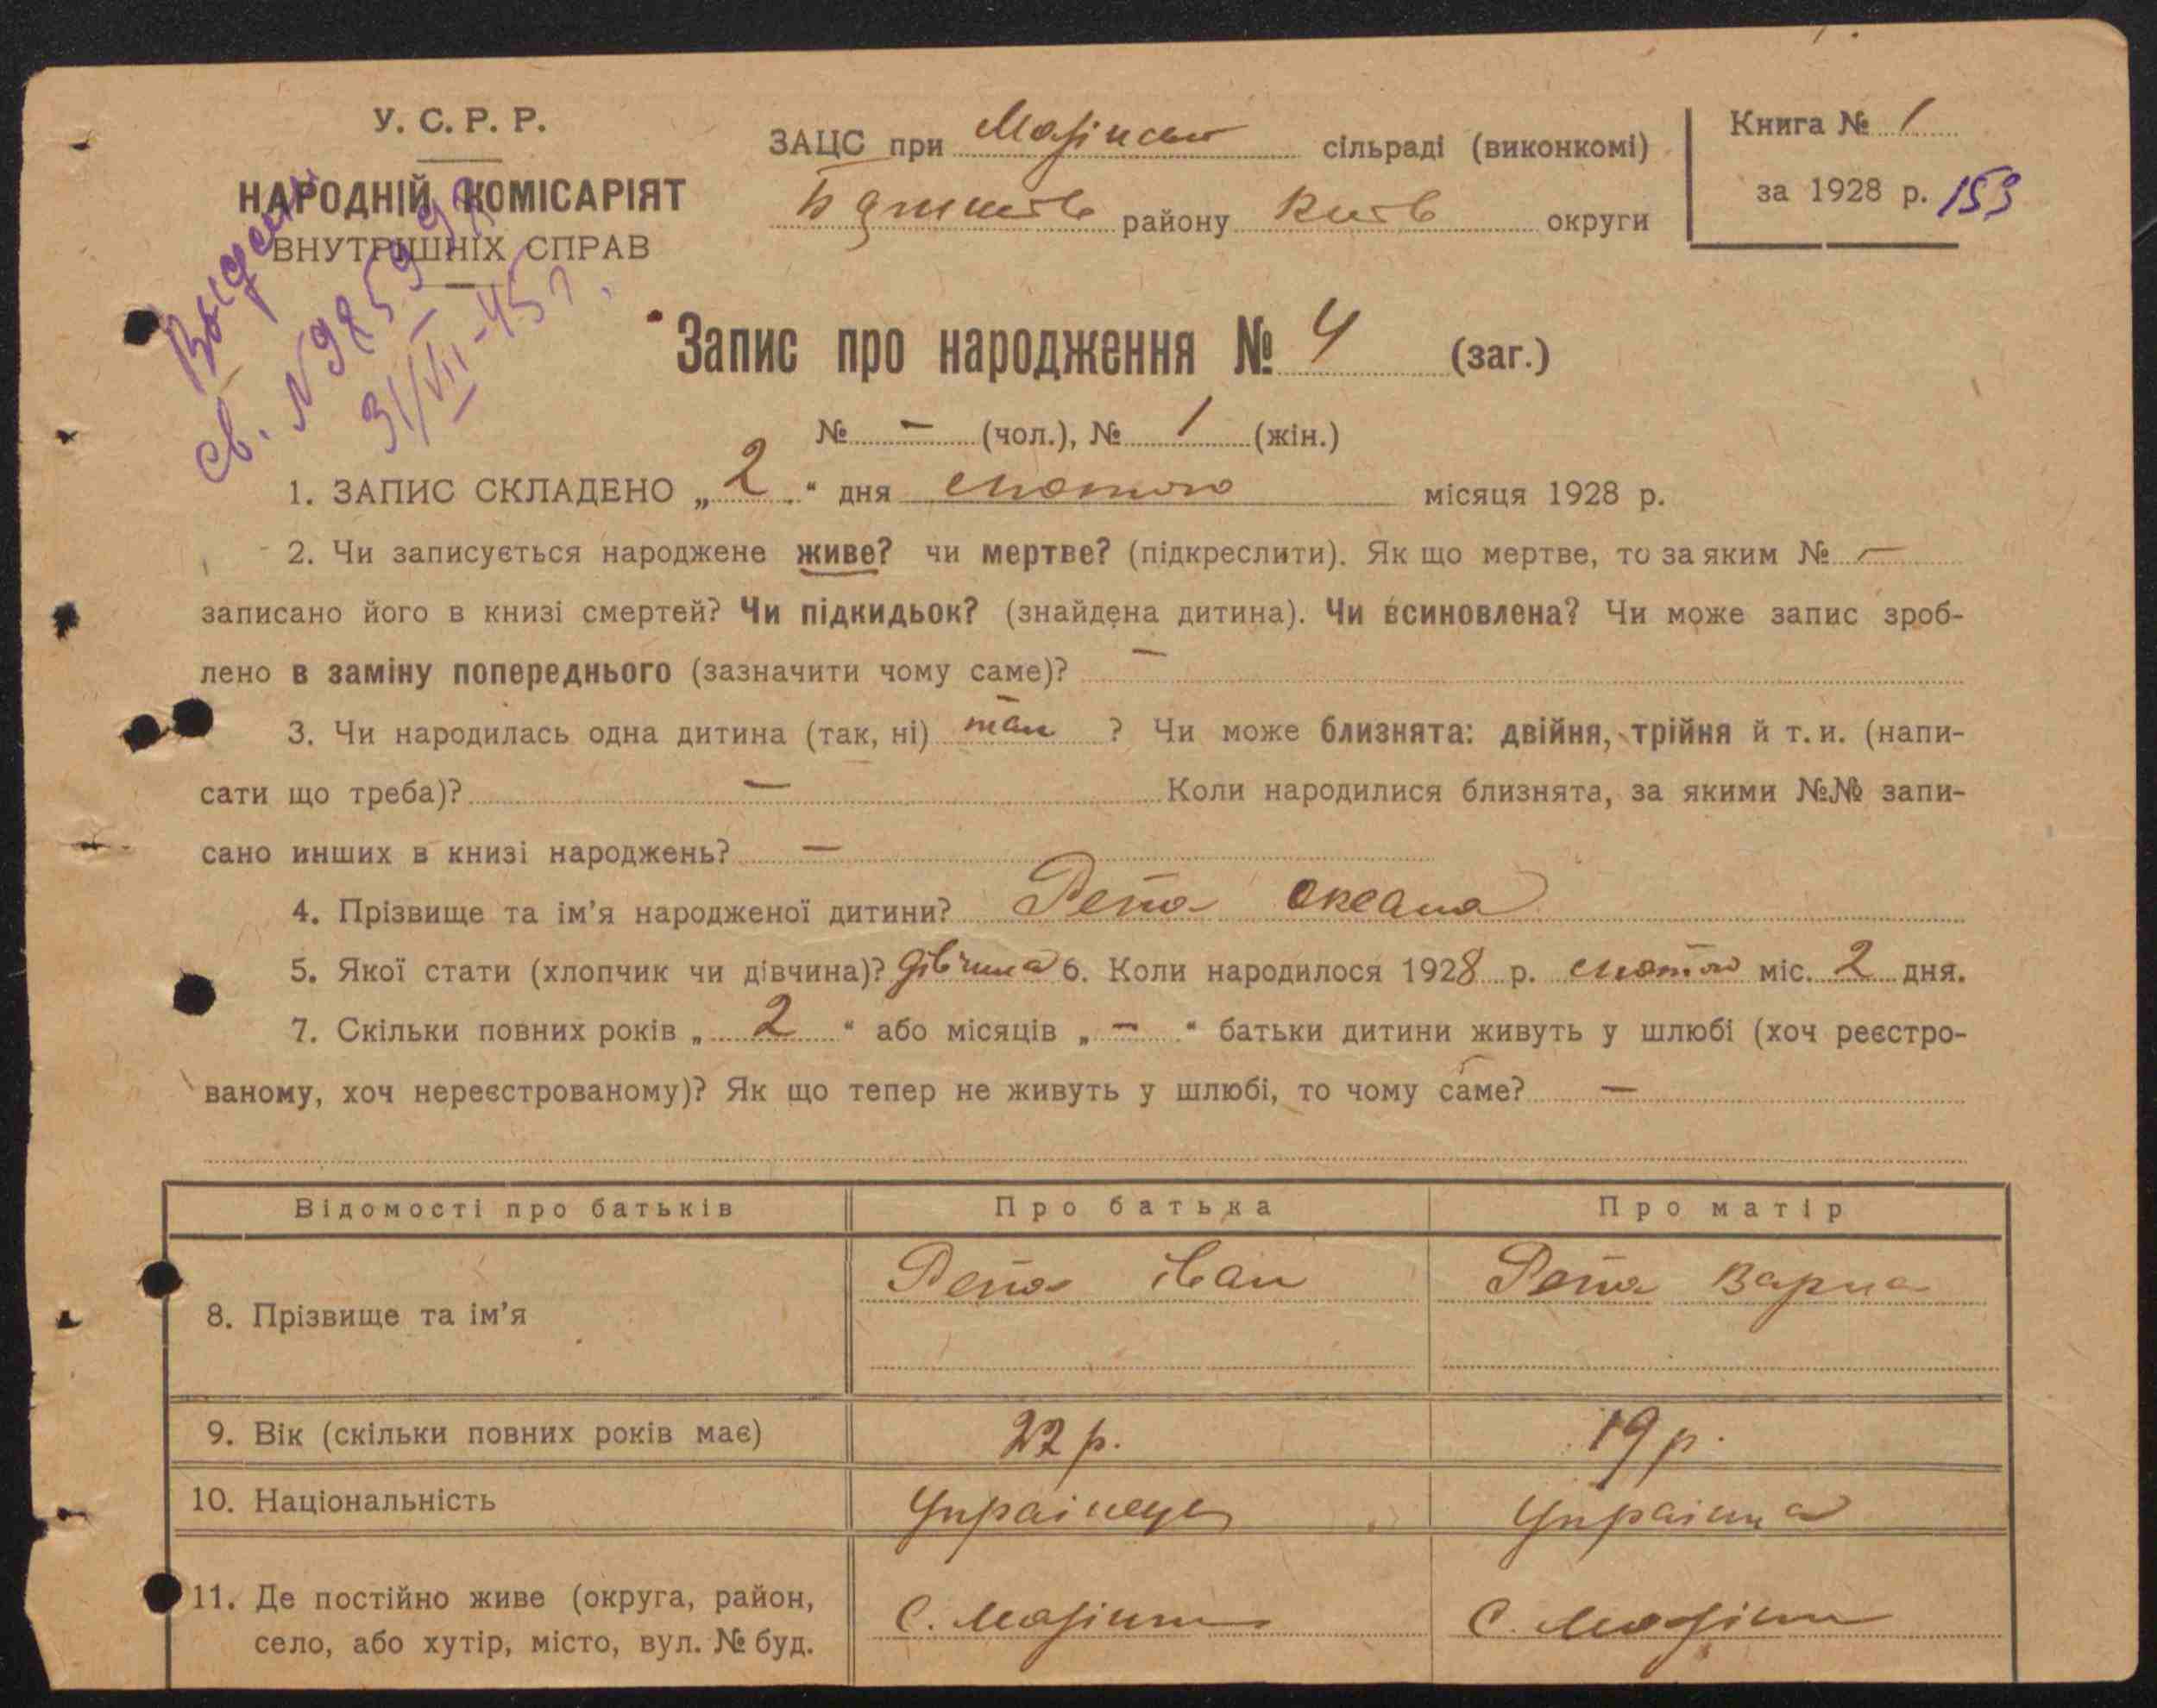 У. С. Р. Р.
НАРОДНІЙ КОМІСАРІЯТ
ВНУТРІШНІХ СПРАВ
ЗАЦС при сільраді (виконкомі)
району Київ округи
Книга № 1
за 1928 р. 153
св. N
31/VII-45 г.
Запис про народження № 4 (заг.)
№ — (чол.), № 1 (жін.)
1. ЗАПИС СКЛАДЕНО „2“ дня лютого місяця 1928 р.
2. Чи записується народжене живе? чи мертве? (підкреслити). Як що мертве, то за яким № —
записано його в книзі смертей? Чи підкидьок? (знайдена дитина). Чи всиновлена? Чи може запис зроб-
лено в заміну попереднього (зазначити чому саме)? —
3. Чи народилась одна дитина (так, ні) так ? Чи може близнята: двійня, трійня й т. и. (напи-
сати що треба)? — Коли народилися близнята, за якими №№ запи-
сано инших в книзі народжень? —
4. Прізвище та ім’я народженої дитини? Репа Оксана
5. Якої стати (хлопчик чи дівчина)? дівчина 6. Коли народилося 1928 р. лютого міс. 2 дня.
7. Скільки повних років „2“ або місяців „—“ батьки дитини живуть у шлюбі (хоч реєстро-
ваному, хоч нереєстрованому)? Як що тепер не живуть у шлюбі, то чому саме? —
Відомості про батьків Про батька Про матір
8. Прізвище та ім’я Репа Іван Репа Варка
9. Вік (скільки повних років має) 22 р. 19 р.
10. Національність Українець Українка
11. Де постійно живе (округа, район, С. С.
село, або хутір, місто, вул. № буд.